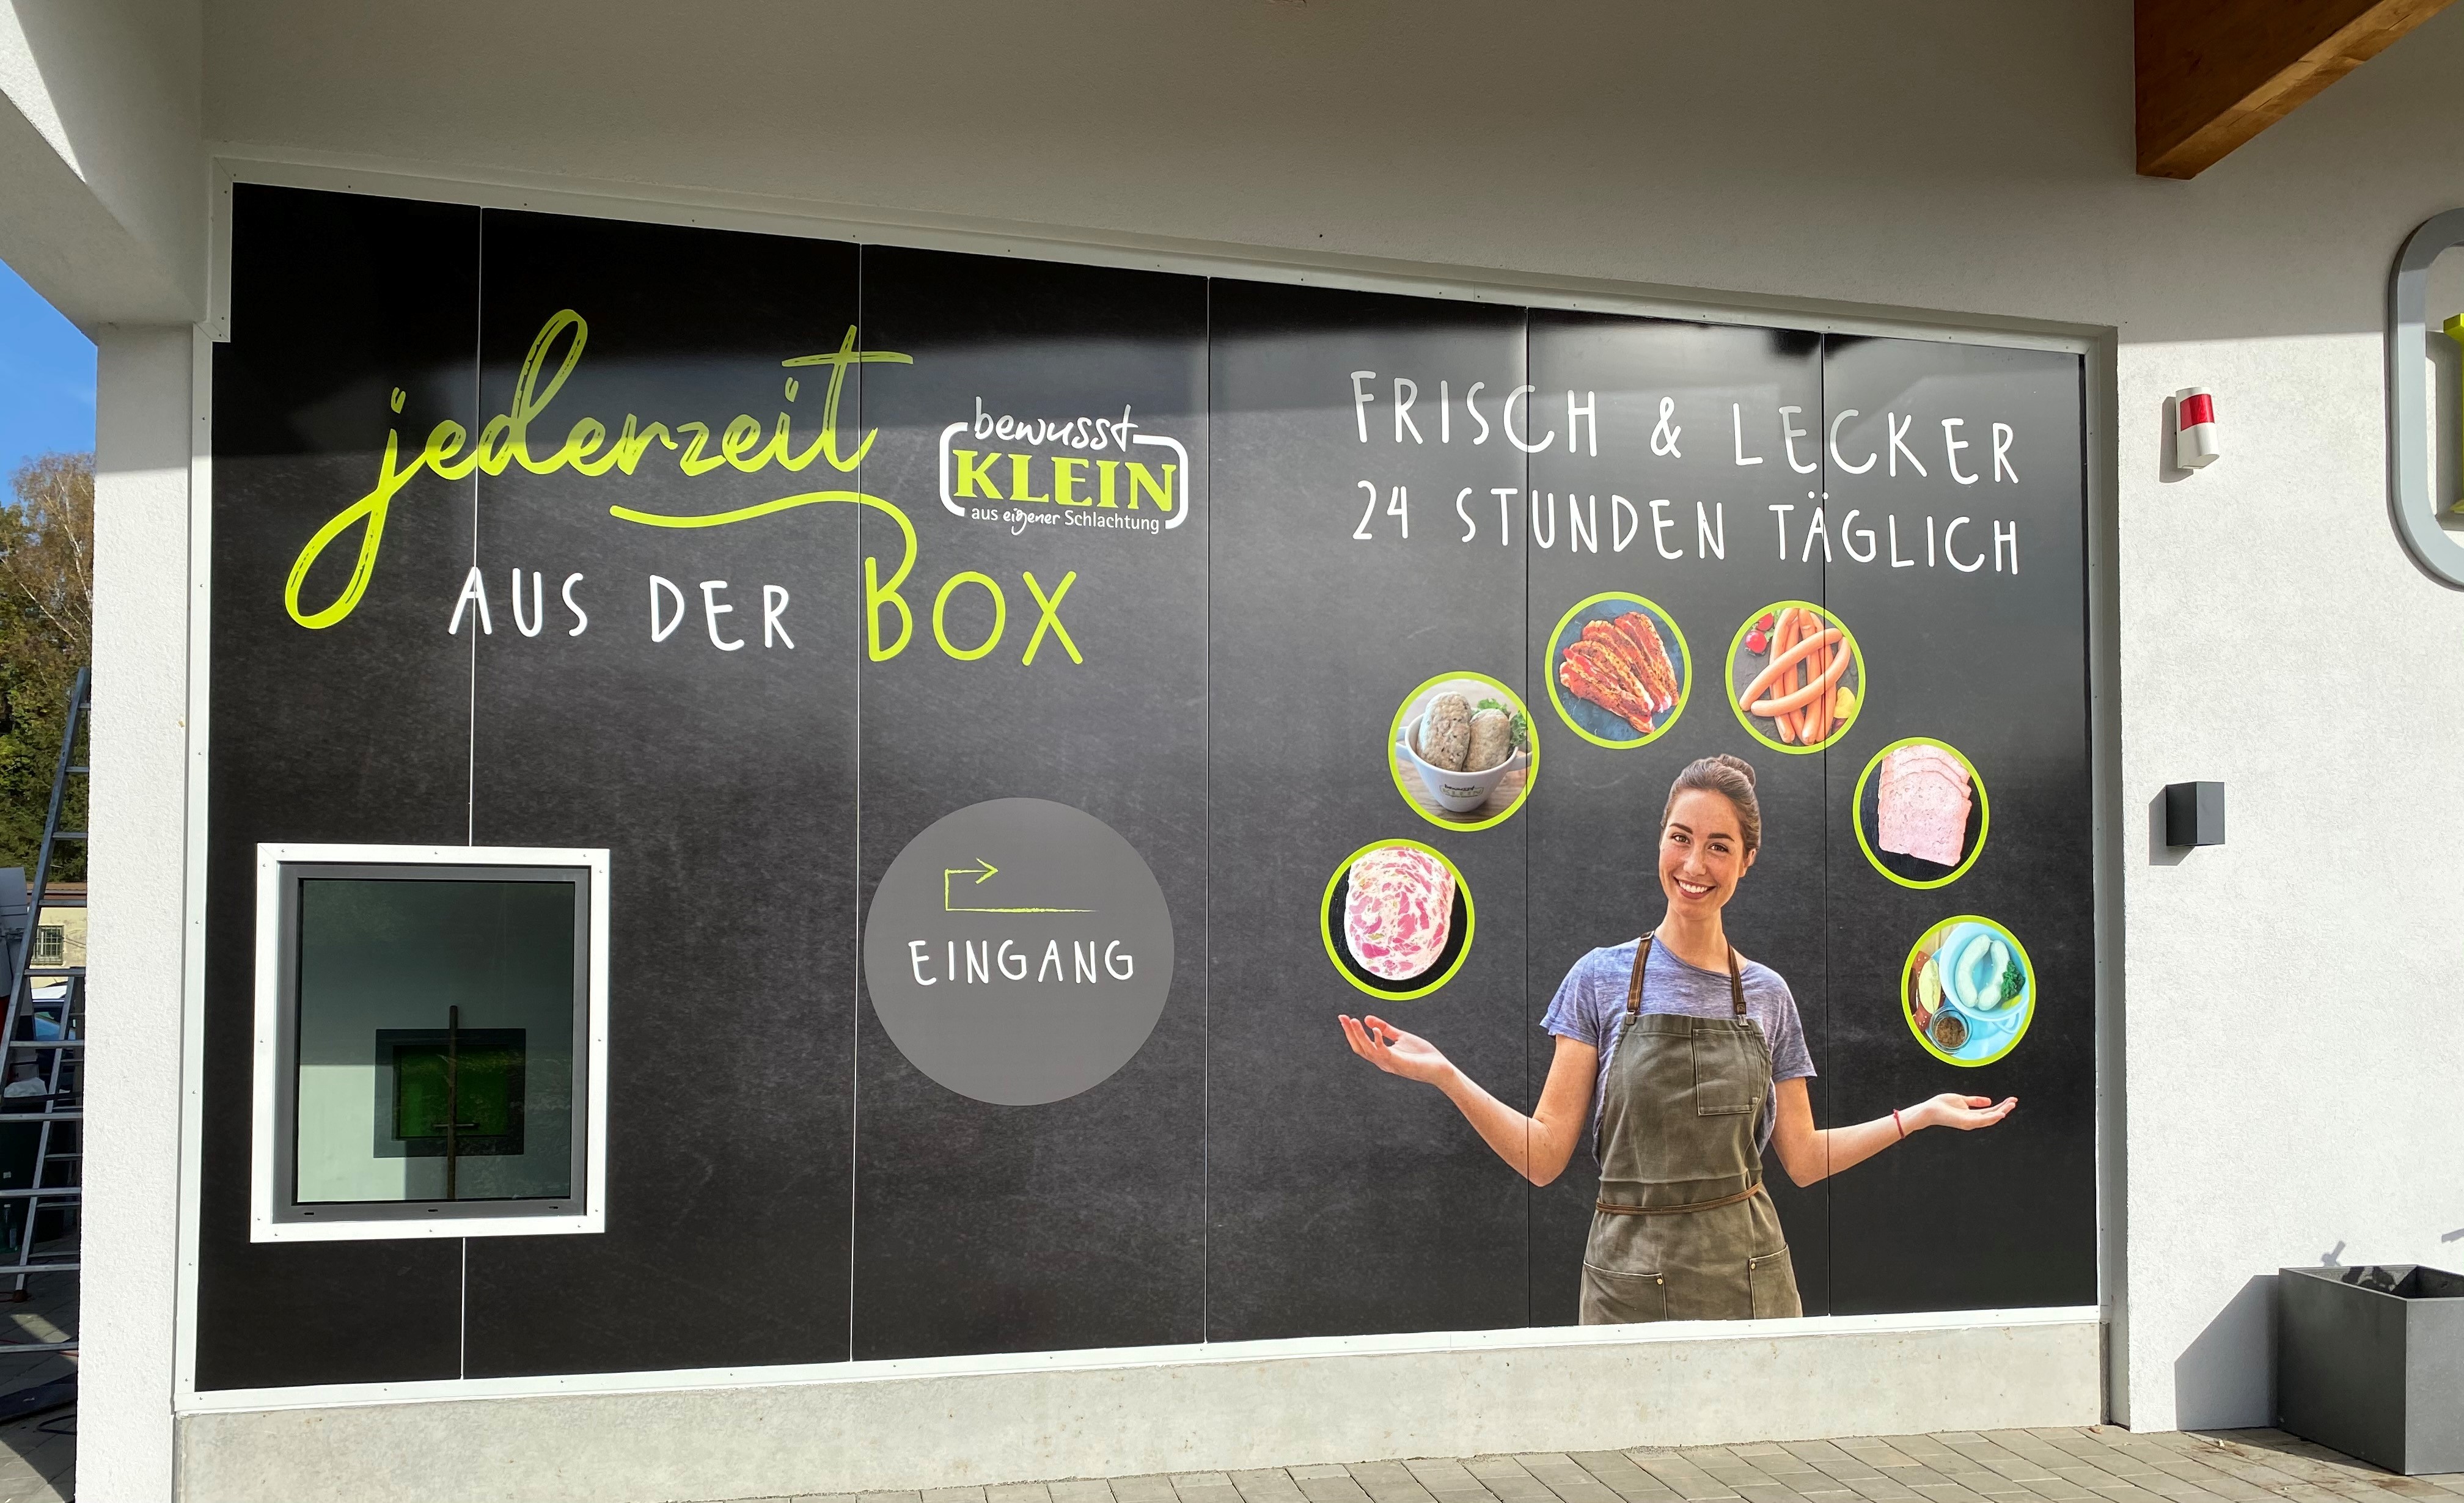 jederzeit
AUS DER BOX
bewusst
KLEIN
aus eigener Schlachtung
FRISCH & LECKER
24 STUNDEN TÄGLICH
bewusst
KLEIN
EINGANG